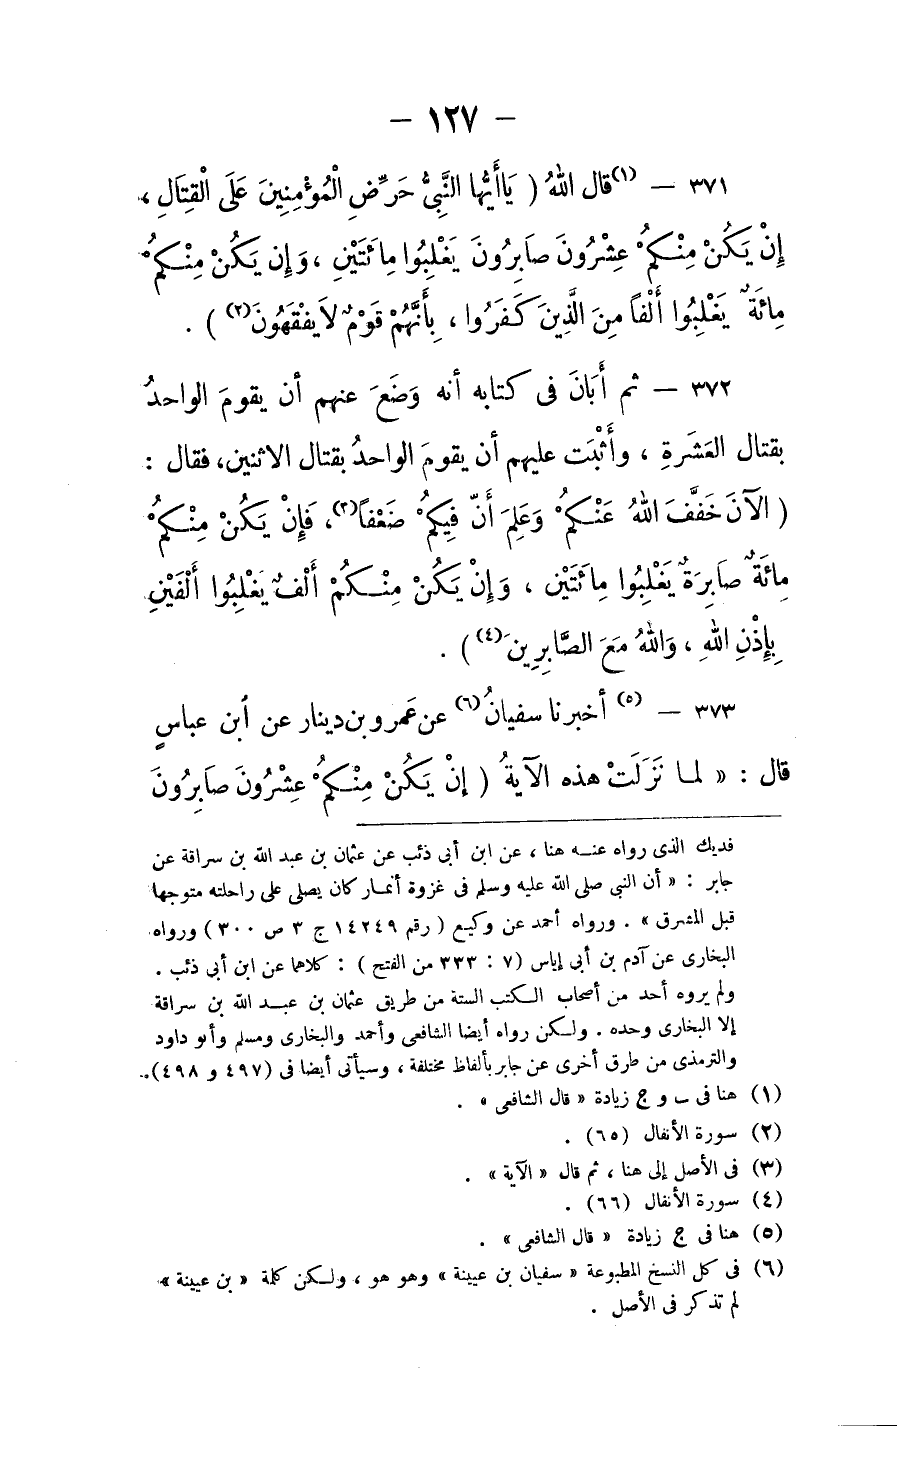 — ١٢٧ —
٣٧١ — (١) قال اللهُ ( يَا أَيُّهَا النَّبِيُّ حَرِّضِ الْمُؤْمِنِينَ عَلَى الْقِتَالِ ،
إِنْ يَكُنْ مِنْكُمْ عِشْرُونَ صَابِرُونَ يَغْلِبُوا مِائَتَيْنِ ، وَإِن يَكُنْ مِنْكُمْ
مِائَةٌ يَغْلِبُوا أَلْفاً مِنَ الَّذِينَ كَفَرُوا ، بِأَنَّهُمْ قَوْمٌ لاَ يَفْقَهُونَ (٢) ) .
٣٧٢ — ثم أَبَانَ فى كتابه أنه وَضَعَ عنهم أن يقومَ الواحدُ
بقتال العَشَرةِ ، وأَثْبَت عليهم أن يقومَ الواحدُ بقتال الاثنين، فقال :
( الآنَ خَفَّفَ اللهُ عَنْكُمْ وَعَلِمَ أَنَّ فِيكُمْ ضَعْفاً (٣)، فَإِنْ يَكُنْ مِنْكُمْ
مِائَةٌ صَابِرَةٌ يَغْلِبُوا مِائَتَيْنِ ، وَإِنْ يَكُنْ مِنْكُمْ أَلْفٌ يَغْلِبُوا أَلْفَيْنِ
بِإِذْنِ اللهِ ، وَاللهُ مَعَ الصَّابِرِينَ (٤) ) .
٣٧٣ — (٥) أخبرنا سفيانُ (٦) عن عَمرو بن دينار عن ابن عباسٍ
قال : « لما نَزَلَتْ هذه الآيةُ ( إِنْ يَكُنْ مِنْكُمْ عِشْرُونَ صابِرُونَ
فديك الذى رواه عنه هنا ، عن ابن أبى ذئب عن عثمان بن عبد الله بن سراقة عن
جابر : « أن النبي صلى الله عليه وسلم فى غزوة أنمار كان يصلى على راحلته متوجها
قبل المشرق » . ورواه أحمد عن وكيع ( رقم ١٤٢٤٩ ج ٣ ص ٣٠٠ ) ورواه
البخارى عن آدم بن أبى إياس ( ٧ : ٣٣٣ من الفتح ) : كلاهما عن ابن أبى ذئب .
ولم يروه أحد من أصحاب الكتب الستة من طريق عثمان بن عبد الله بن سراقة
إلا البخارى وحده . ولكن رواه أيضا الشافعى وأحمد والبخارى ومسلم وأبو داود
والترمذى من طرق أخرى عن جابر بألفاظ مختلفة ، وسيأتى أيضا فى (٤٩٧ و ٤٩٨).
(١) هنا فى ب و ج زيادة « قال الشافعى » .
(٢) سورة الأنفال (٦٥) .
(٣) فى الأصل إلى هنا ، ثم قال « الآية » .
(٤) سورة الأنفال (٦٦) .
(٥) هنا فى ج زيادة « قال الشافعى » .
(٦) فى كل النسخ المطبوعة « سفيان بن عيينة » وهو هو ، ولكن كلمة « بن عيينة »
لم تذكر فى الأصل .